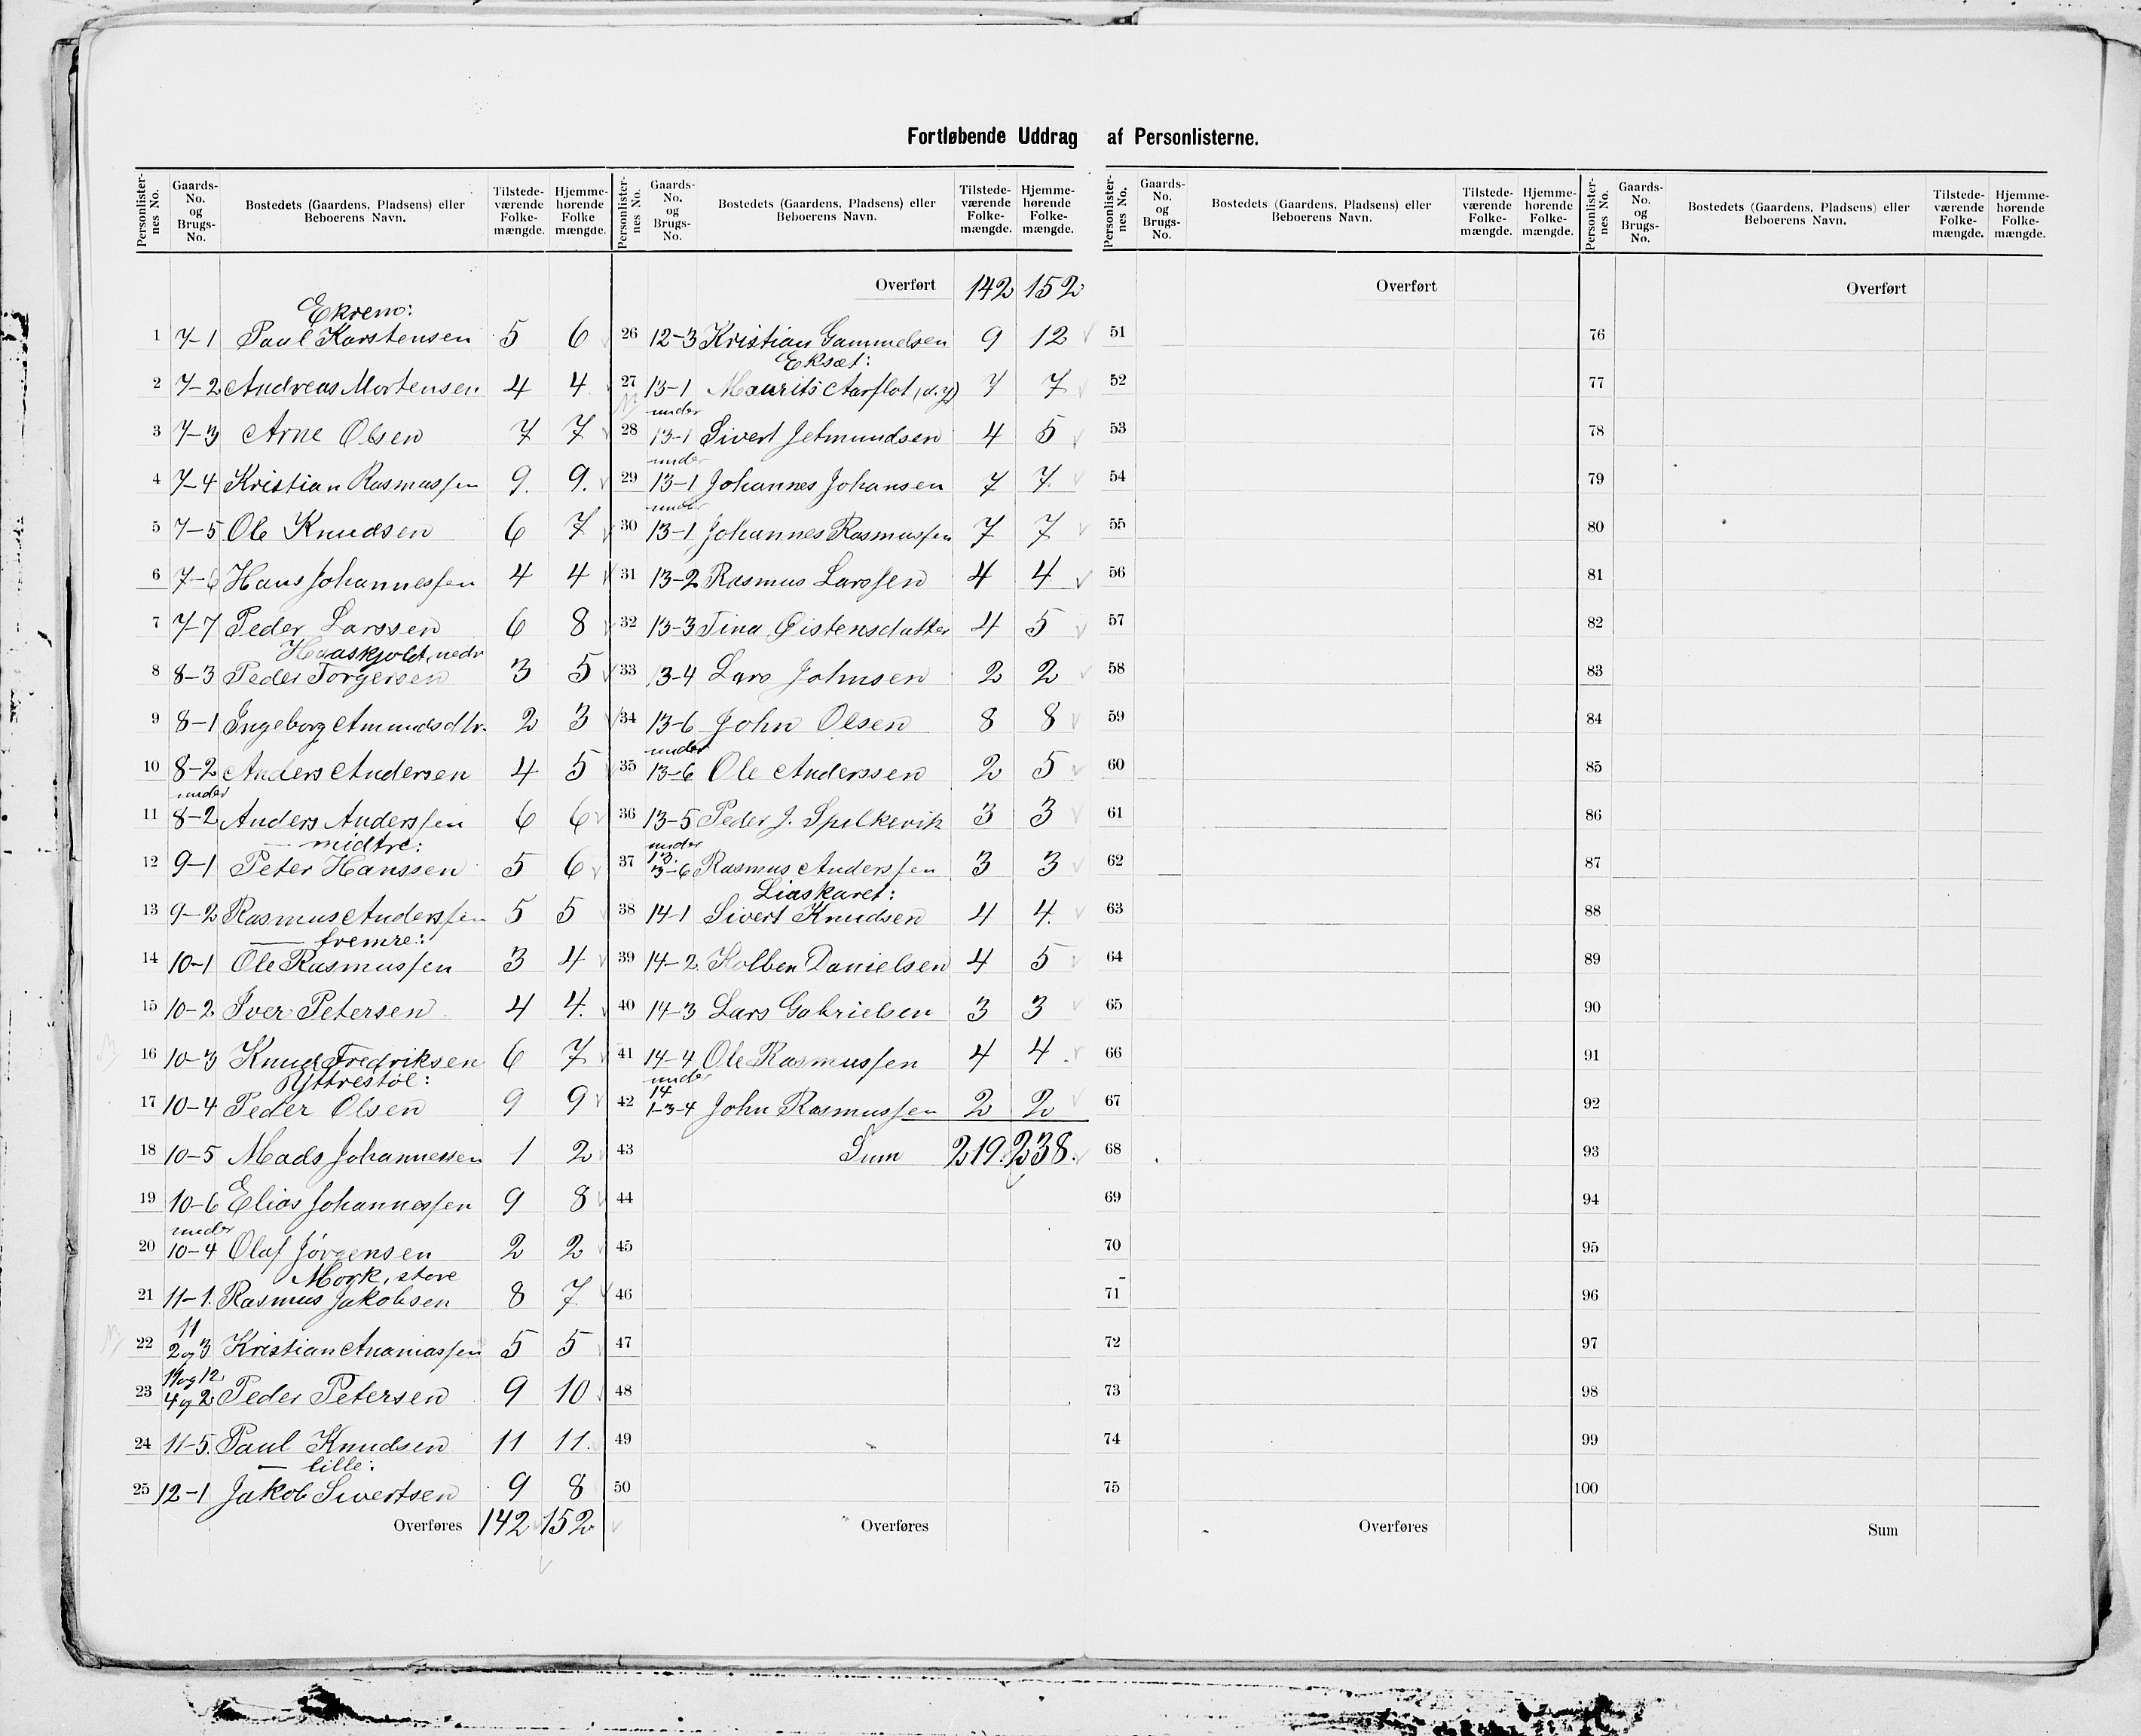 Fortløbende Uddrag af Personlisterne.
Personlisternes No. Gaards-No. og Brugs-No. Bostedets (Gaardens, Pladsens) eller Beboerens Navn. Tilstedeværende Folkemængde. Hjemmehørende Folkemængde.
Ekrem:
1 7-1 Paul Karstensen 5 6
2 7-2 Andreas Mortensen 4 4
3 7-3 Arne Olsen 7 7
4 7-4 Kristian Rasmussen 9. 9.
5 7-5 Ole Knudsen 6 7
6 7-6 Hans Johannessen 4 4
7 7-7 Peder Larssen 6 8
Haaskjold, nedr
8 8-3 Peder Torgersen 3 5
9 8-1 Ingeborg Amundsdtr. 2 3
10 8-2 Anders Andersen 4 5
under
11 8-2 Anders Anderssen 6 6
— midtre:
12 9-1 Peter Hanssen 5 6
13 9-2 Rasmus Anderssen 5 5
— fremre:
14 10-1 Ole Rasmussen 3 4
15 10-2 Iver Petersen 4 4.
16 10-3 Knud Fredriksen 6 7
Yttrestøl:
17 10-4 Peder Olsen 9 9
18 10-5 Mads Johannessen 1 2
19 10-6 Elias Johannessen 9 8
under
20 10-4 Olaf Jørgensen 2 2
Mork, store
21 11-1. Rasmus Jakobsen 8 7
11
22 2og3 Kristian Ananiassen 5 5
11og12
23 4og2 Peder Petersen 9 10
24 11-5. Paul Knudsen 11 11.
— lille:
25 12-1 Jakob Sivertsen 9 8
Overføres 142 152
Personlisternes No. Gaards-No. og Brugs-No. Bostedets (Gaardens, Pladsens) eller Beboerens Navn. Tilstedeværende Folkemængde. Hjemmehørende Folkemængde.
Overført 142 152
26 12-3 Kristian Gammelsen 9 12
Eksæt:
27 13-1 Maurits Aarflot (d.y) 7 7
under
28 13-1 Sivert Jetmundsen 4 5
under
29 13-1 Johannes Johansen 7 7.
under
30 13-1 Johannes Rasmussen 7 7
31 13-2 Rasmus Larssen 4 4
32 13-3 Tina Øistensdatter 4 5
33 13-4 Lars Johnsen 2 2
34 13-6 John Olsen 8 8
under
35 13-6 Ole Anderssen 2 5
36 13-5 Peder J. Spilkevik 3 3
under
13.
37 3-6 Rasmus Anderssen 3 3
Liaskaret:
38 14-1 Sivert Knudsen 4 4.
39 14-2 Kolben Danielsen 4 5
40 14-3 Lars Gabrielsen 3 3
41 14-4 Ole Rasmussen 4 4
under
14
42 1-3-4 John Rasmussen 2 2
43 Sum 219. 238.
44
45
46
47
48
49
50
Overføres
Personlisternes No. Gaards-No. og Brugs-No. Bostedets (Gaardens, Pladsens) eller Beboerens Navn. Tilstedeværende Folkemængde. Hjemmehørende Folkemængde.
Overført
51
52
53
54
55
56
57
58
59
60
61
62
63
64
65
66
67
68
69
70
71
72
73
74
75
Overføres
Personlisternes No. Gaards-No. og Brugs-No. Bostedets (Gaardens, Pladsens) eller Beboerens Navn. Tilstedeværende Folkemængde. Hjemmehørende Folkemængde.
Overført
76
77
78
79
80
81
82
83
84
85
86
87
88
89
90
91
92
93
94
95
96
97
98
99
100
Sum